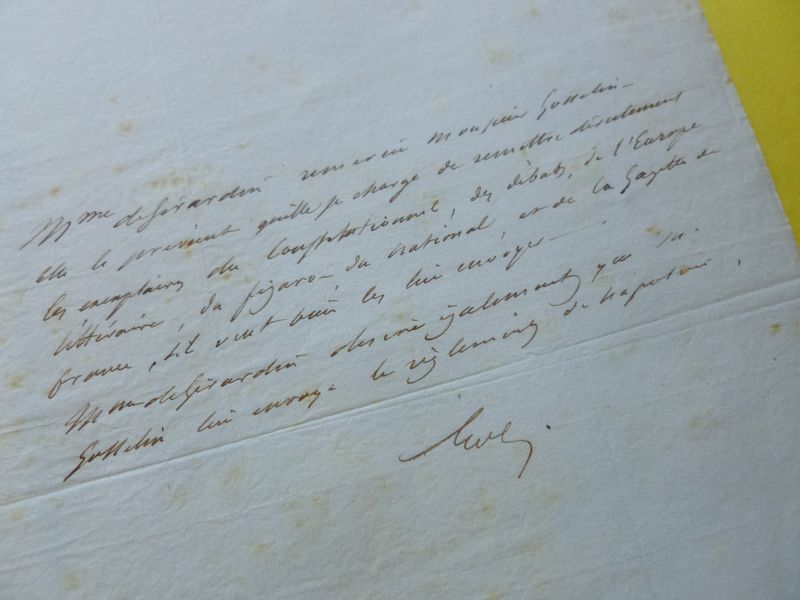 Mme de Girardin remercie Monsieur Gosselin
elle le prévient qu'elle se charge de remettre directement
les exemplaires du Constitutionnel, des débats, de l'Europe
littéraire, du figaro, du national, et de la Gazette de
france, s'il veut bien les lui envoyer
Mme de Girardin désire également que M.
Gosselin lui envoye le règlement de napoline.